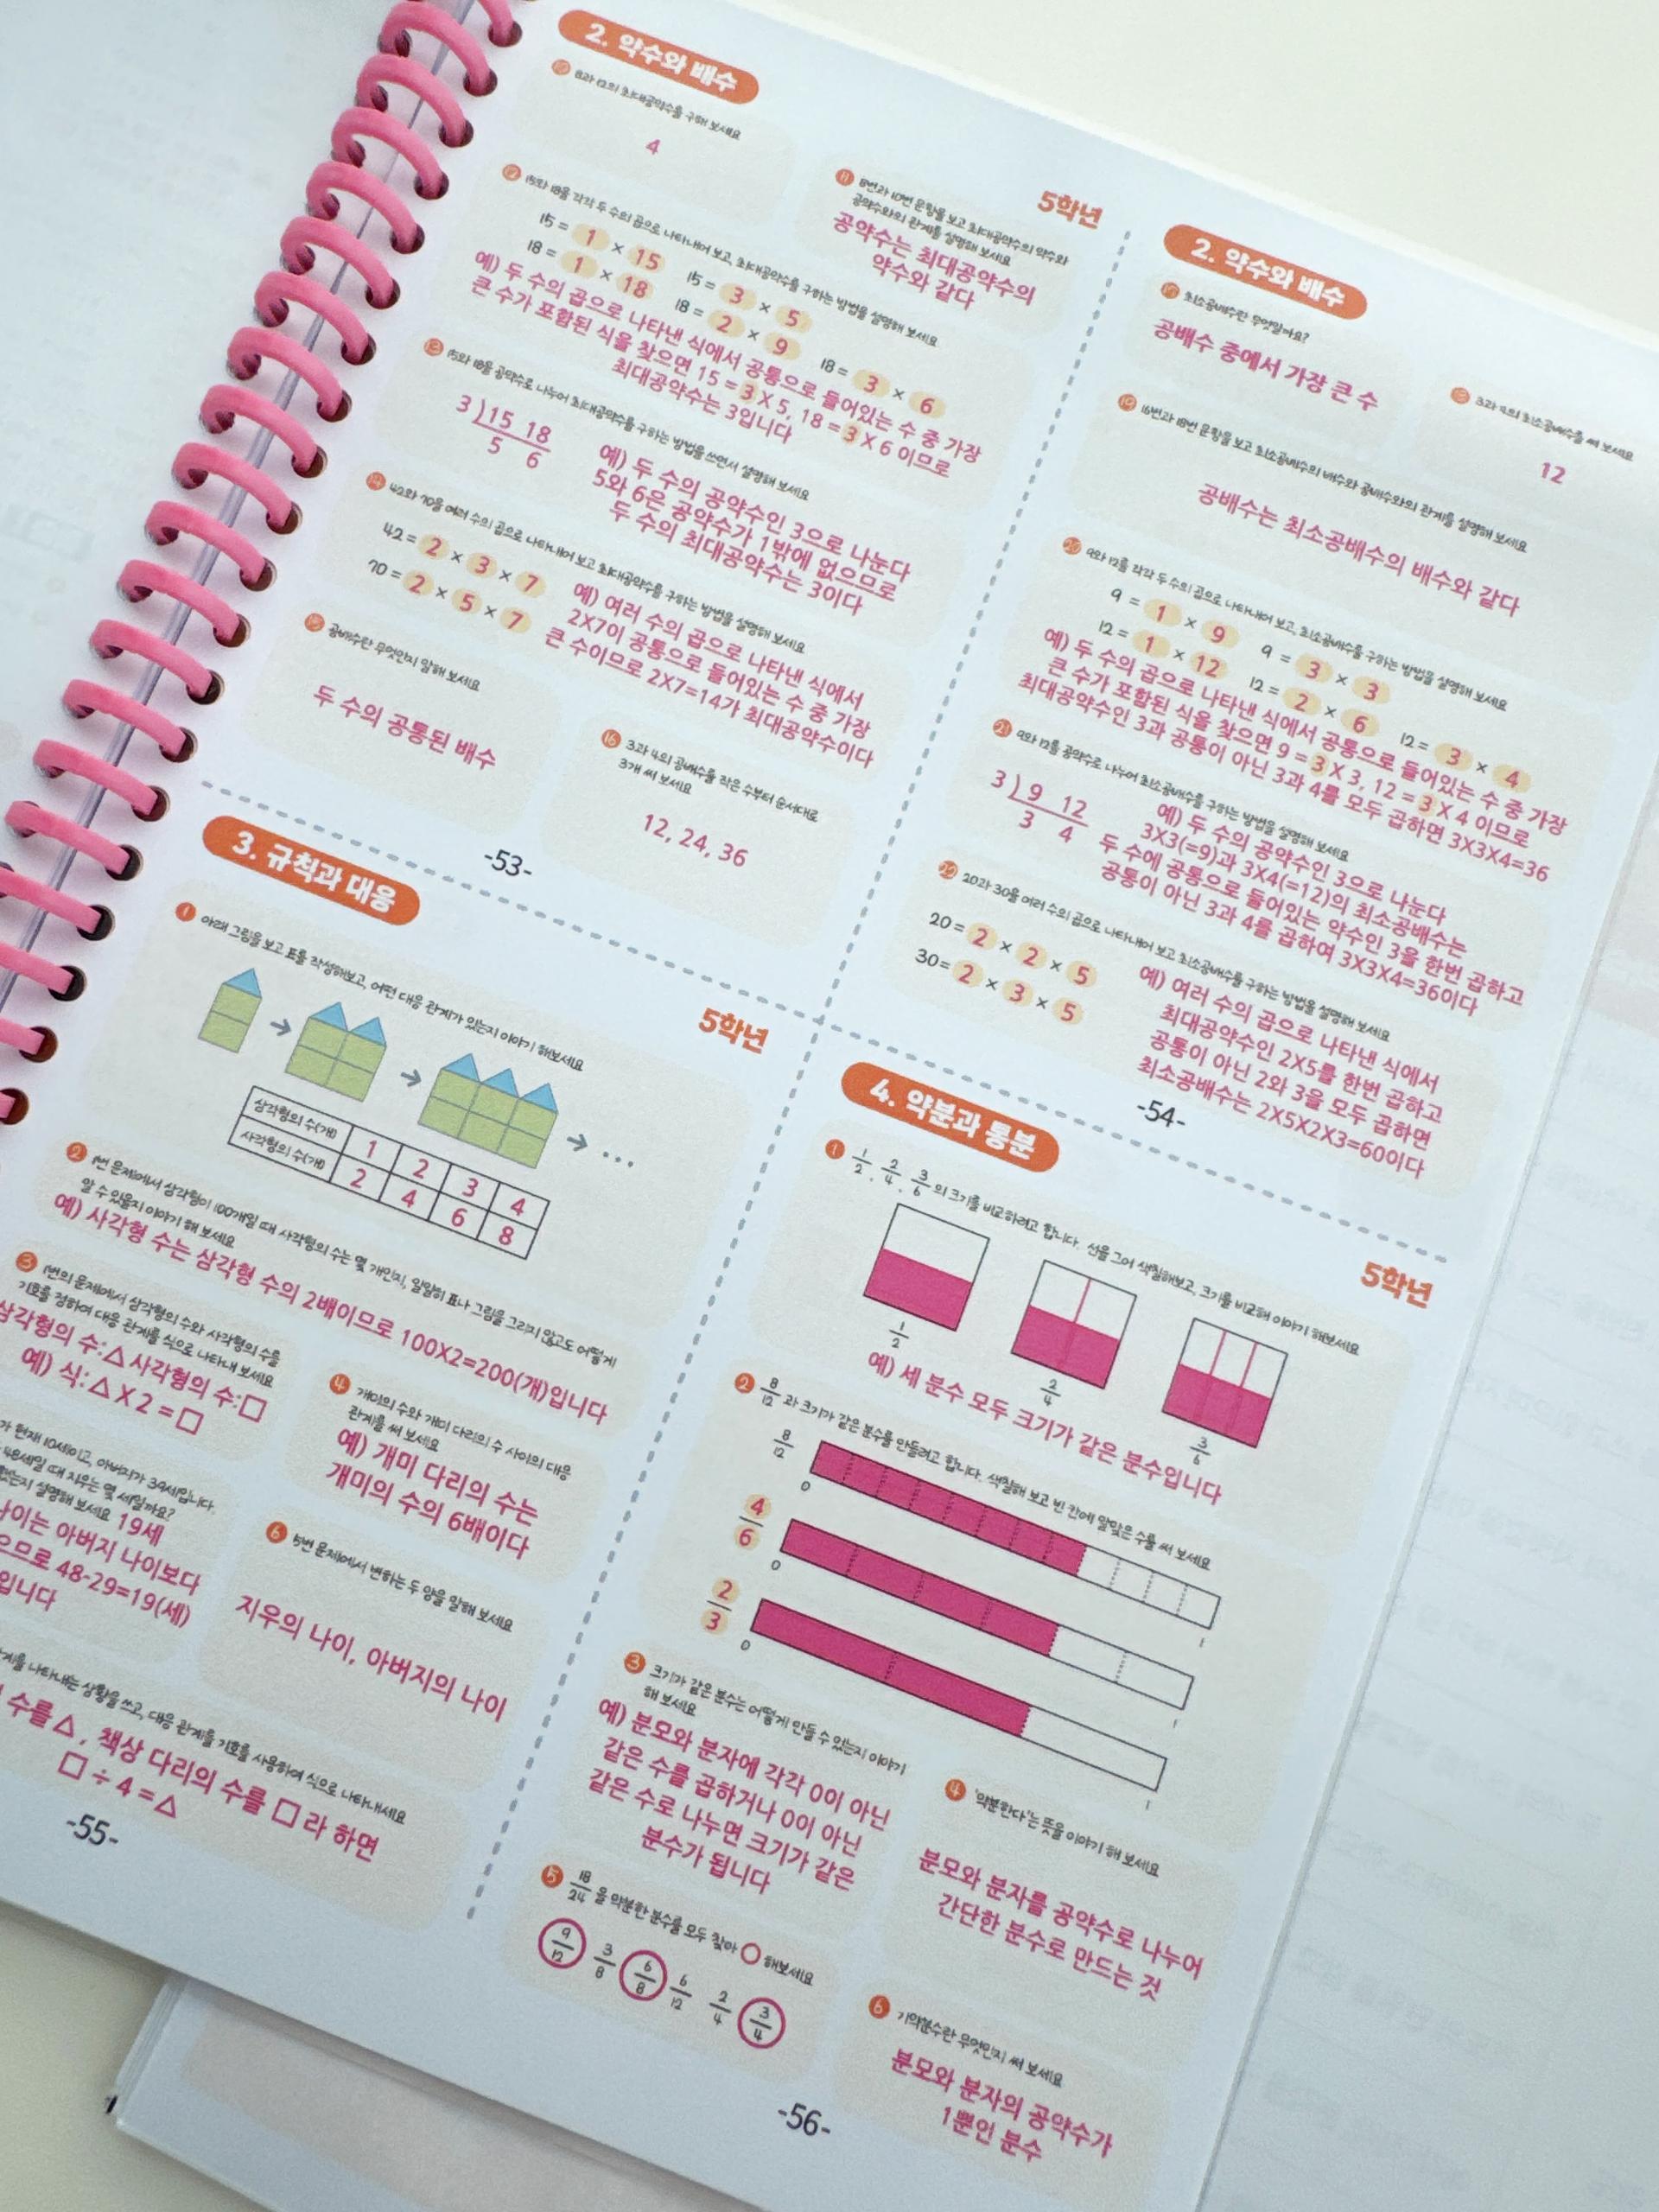 2. 약수와 배수
10 8과 12의 최대공약수를 구해 보세요
4
5학년
11 8번과 10번 문항을 보고 최대공약수의 약수와
공약수와의 관계를 설명해 보세요
공약수는 최대공약수의
약수와 같다
12 15와 18을 각각 두 수의 곱으로 나타내어 보고, 최대공약수를 구하는 방법을 설명해 보세요
15 = 1 × 15 15 = 3 × 5
18 = 1 × 18 18 = 2 × 9 18 = 3 × 6
예) 두 수의 곱으로 나타낸 식에서 공통으로 들어있는 수 중 가장
큰 수가 포함된 식을 찾으면 15 = 3 X 5, 18 = 3 X 6 이므로
최대공약수는 3입니다
13 15와 18을 공약수로 나누어 최대공약수를 구하는 방법을 쓰면서 설명해 보세요
3 ) 15 18
5 6
예) 두 수의 공약수인 3으로 나눈다
5와 6은 공약수가 1밖에 없으므로
두 수의 최대공약수는 3이다
14 42와 70을 여러 수의 곱으로 나타내어 보고 최대공약수를 구하는 방법을 설명해 보세요
42 = 2 × 3 × 7
70 = 2 × 5 × 7
예) 여러 수의 곱으로 나타낸 식에서
2X7이 공통으로 들어있는 수 중 가장
큰 수이므로 2X7=14가 최대공약수이다
15 공배수란 무엇인지 말해 보세요
두 수의 공통된 배수
16 3과 4의 공배수를 작은 수부터 순서대로
3개 써 보세요
12, 24, 36
-53-
2. 약수와 배수
17 최소공배수란 무엇일까요?
공배수 중에서 가장 큰 수
18 3과 4의 최소공배수를 써 보세요
12
19 16번과 18번 문항을 보고 최소공배수의 배수와 공배수와의 관계를 설명해 보세요
공배수는 최소공배수의 배수와 같다
20 9와 12를 각각 두 수의 곱으로 나타내어 보고, 최소공배수를 구하는 방법을 설명해 보세요
9 = 1 × 9 9 = 3 × 3
12 = 1 × 12 12 = 2 × 6 12 = 3 × 4
예) 두 수의 곱으로 나타낸 식에서 공통으로 들어있는 수 중 가장
큰 수가 포함된 식을 찾으면 9 = 3 X 3, 12 = 3 X 4 이므로
최대공약수인 3과 공통이 아닌 3과 4를 모두 곱하면 3X3X4=36
21 9와 12를 공약수로 나누어 최소공배수를 구하는 방법을 설명해 보세요
3 ) 9 12
3 4
예) 두 수의 공약수인 3으로 나눈다
3X3(=9)과 3X4(=12)의 최소공배수는
두 수에 공통으로 들어있는 약수인 3을 한번 곱하고
공통이 아닌 3과 4를 곱하여 3X3X4=36이다
22 20과 30을 여러 수의 곱으로 나타내어 보고 최소공배수를 구하는 방법을 설명해 보세요
20 = 2 × 2 × 5
30 = 2 × 3 × 5
예) 여러 수의 곱으로 나타낸 식에서
최대공약수인 2X5를 한번 곱하고
공통이 아닌 2와 3을 모두 곱하면
최소공배수는 2X5X2X3=60이다
-54-
3. 규칙과 대응
5학년
1 아래 그림을 보고 표를 작성해보고, 어떤 대응 관계가 있는지 이야기 해보세요
삼각형의 수(개) 1 2 3 4
사각형의 수(개) 2 4 6 8
2 1번 문제에서 삼각형이 100개일 때 사각형의 수는 몇 개인지, 일일히 표나 그림을 그리지 않고도 어떻게
알 수 있을지 이야기 해 보세요
예) 사각형 수는 삼각형 수의 2배이므로 100X2=200(개)입니다
3 1번의 문제에서 삼각형의 수와 사각형의 수를
기호를 정하여 대응 관계를 식으로 나타내 보세요
삼각형의 수:△ 사각형의 수:□
예) 식:△ X 2 = □
4 개미의 수와 개미 다리의 수 사이의 대응
관계를 써 보세요
예) 개미 다리의 수는
개미의 수의 6배이다
가 현재 10세이고, 아버지가 39세입니다.
48세일 때 지우는 몇 세일까요?
설명해 보세요 19세
나이는 아버지 나이보다
므로 48-29=19(세)
입니다
6 5번 문제에서 변하는 두 양을 말해 보세요
지우의 나이, 아버지의 나이
나타내는 상황을 쓰고, 대응 관계를 기호를 사용하여 식으로 나타내세요
수를 △, 책상 다리의 수를 □ 라 하면
□ ÷ 4 = △
-55-
4. 약분과 통분
5학년
1 1/2, 2/4, 3/6 의 크기를 비교하려고 합니다. 선을 그어 색칠해보고, 크기를 비교해 이야기 해보세요
1/2 2/4 3/6
예) 세 분수 모두 크기가 같은 분수입니다
2 8/12 과 크기가 같은 분수를 만들려고 합니다. 색칠해 보고 빈 칸에 알맞은 수를 써 보세요
8/12 0 1
4/6 0 1
2/3 0 1
3 크기가 같은 분수는 어떻게 만들 수 있는지 이야기
해 보세요
예) 분모와 분자에 각각 0이 아닌
같은 수를 곱하거나 0이 아닌
같은 수로 나누면 크기가 같은
분수가 됩니다
4 '약분한다'는 뜻을 이야기 해 보세요
분모와 분자를 공약수로 나누어
간단한 분수로 만드는 것
5 18/24 을 약분한 분수를 모두 찾아 ○ 해보세요
9/12 3/8 6/8 6/12 2/4 3/4
6 기약분수란 무엇인지 써 보세요
분모와 분자의 공약수가
1뿐인 분수
-56-